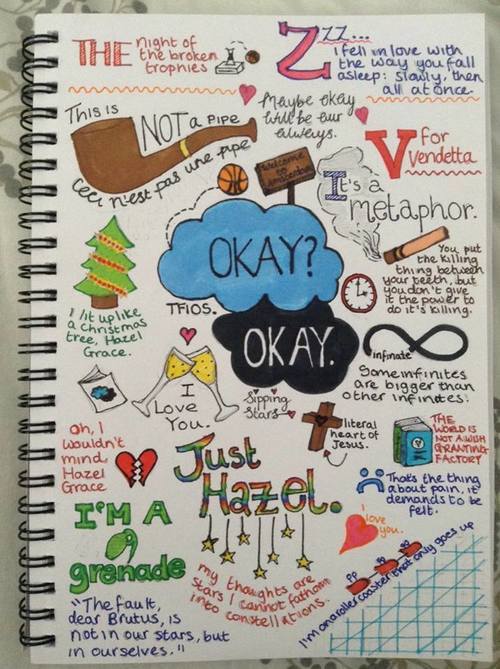 THE night of
the broken
trophies
Zzzz...
i fell in love with
the way you fall
asleep: slowly, then
all at once.
This is
NOT a pipe
Ceci n'est pas une pipe
Maybe okay
will be our
always.
V for
Vendetta
Welcome
to
Amsterdam
It's a
metaphor.
You put
the killing
thing between
your teeth, but
you don't give
it the power to
do it's killing.
OKAY?
TFIOS.
OKAY.
I lit up like
a Christmas
tree, Hazel
Grace.
infinate
Some infinites
are bigger than
other infinites.
I
Love
You.
Sipping
Stars
literal
heart of
Jesus.
THE
WORLD IS
NOT A WISH
GRANTING
FACTORY
Oh, I
wouldn't
mind,
Hazel
Grace
Just
Hazel.
That's the thing
about pain, it
demands to be
felt.
I'M A
grenade
I love
you.
my thoughts are
stars I cannot fathom
into constellations.
I'm on a roller coaster that only goes up
"The fault,
dear Brutus, is
not in our stars, but
in ourselves."